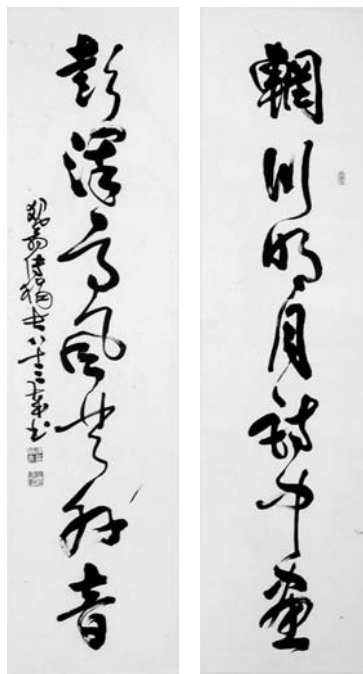 輞川明月詩中畫
彭澤高風外音
傅狷八十三歲書